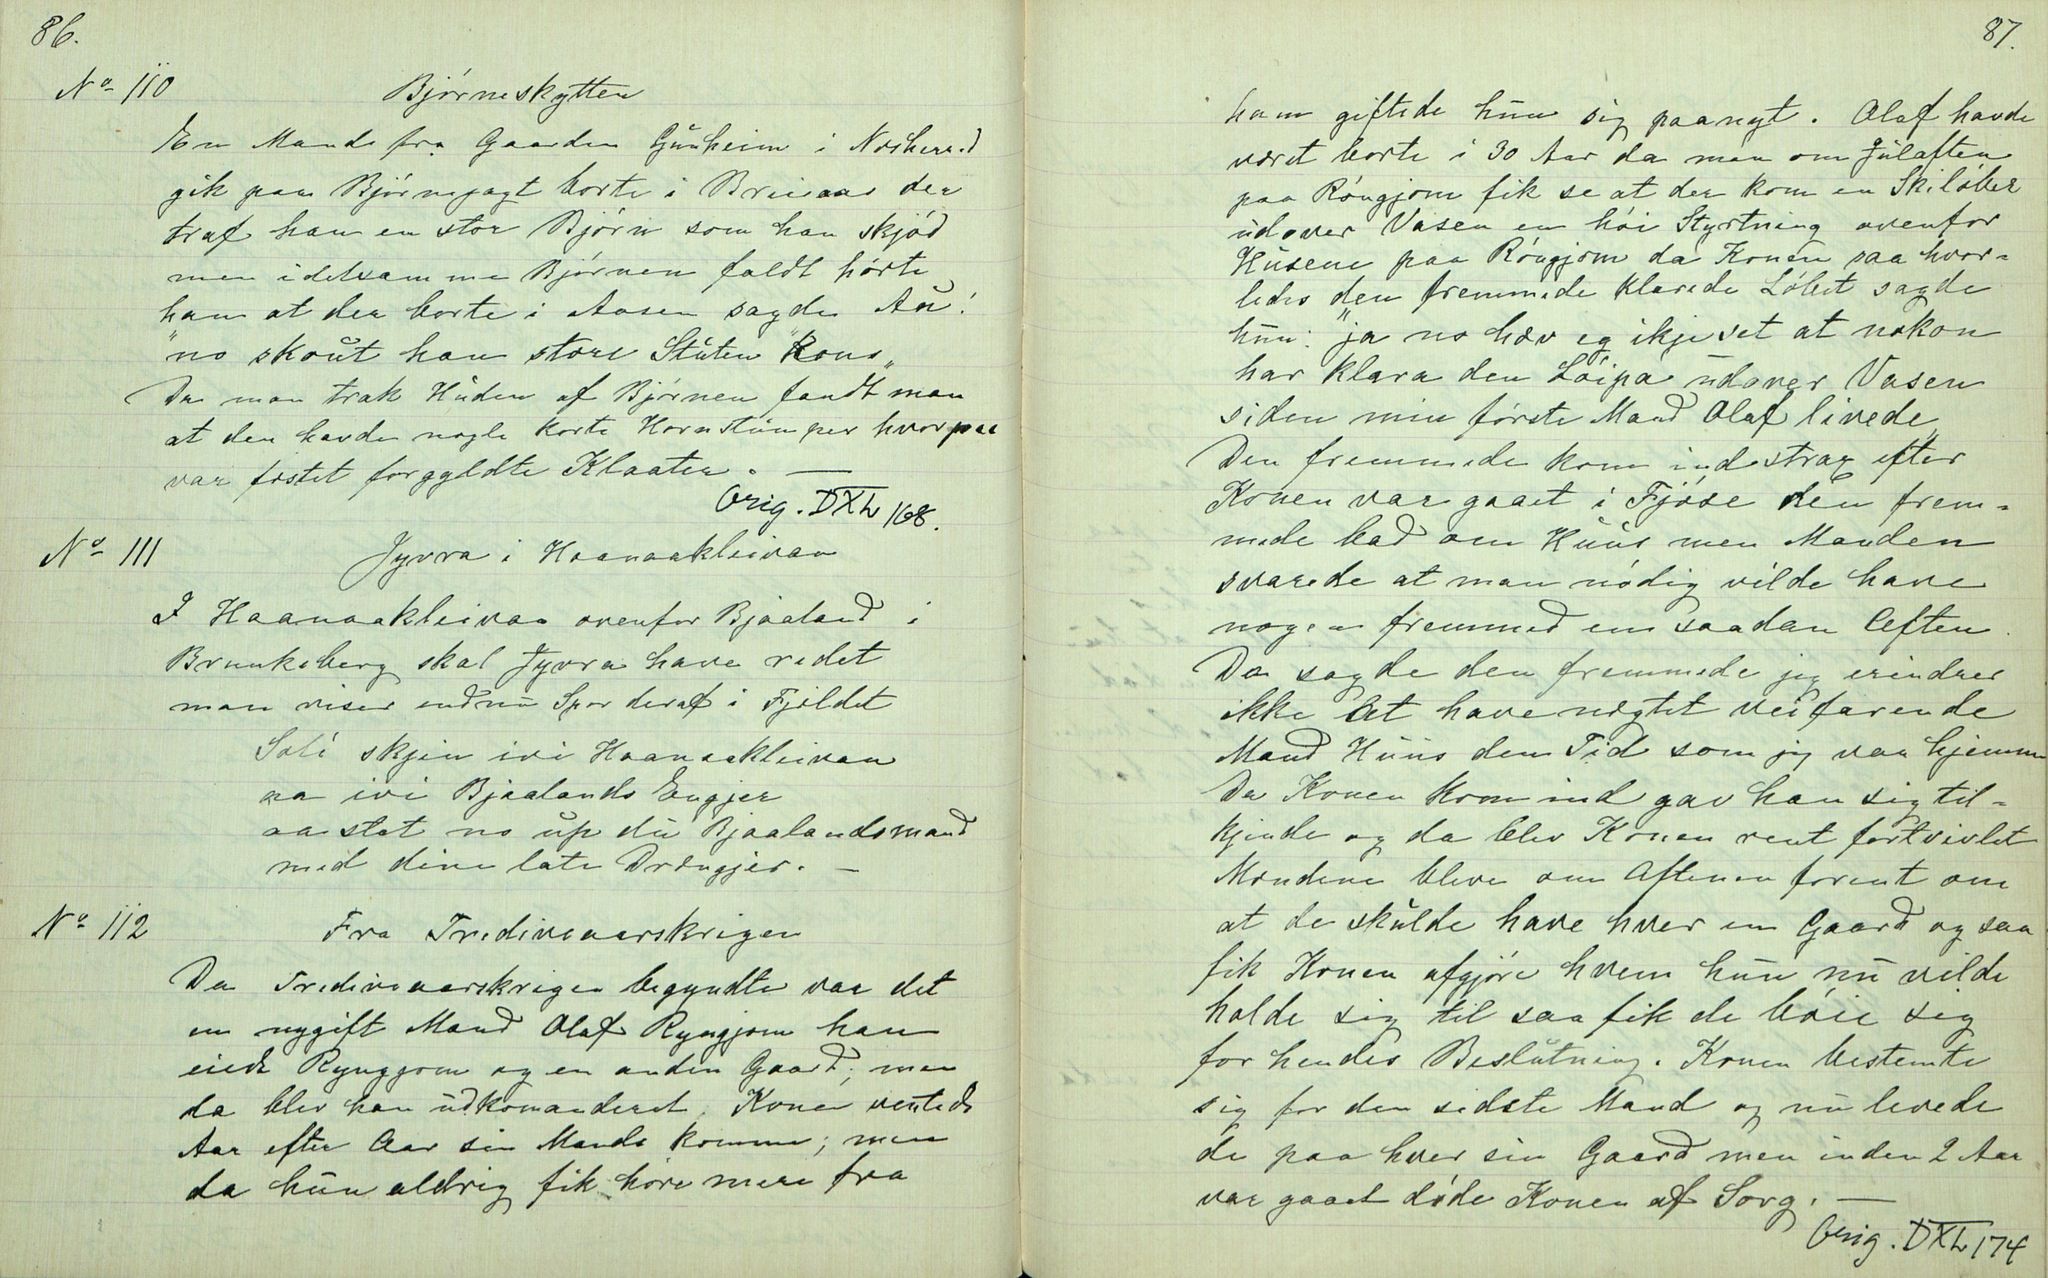 86.
No 110 Bjørneskytten
En Mand fra Gaarden Gunheim i Nesherred
gik paa Bjørnejagt borte i Breiaas der
traf han en stor Bjørn som han skjød
men idetsamme Bjørnen faldt hørte
han at der borte i Aasen sagde Au!
"no skout han store Stuten Rons"
Da man trak Huden af Bjørnen fandt man
at den havde nogle korte Hornstumper hvorpaa
var festet forgyldte Klaater. —
Orig. DXL 168.
No 111 Jyvra i Haanaakleivan
I Haanaakleivan ovenfor Bjaaland i
Brunkeberg skal Jyvra have redet
man viser endnu Spor deraf i Fjeldet
Soli skjin ivi Haanaakleivan
aa ivi Bjaalands Engjer
aa stat no up du Bjaalandsmand
med dine late Drengjer. —
No 112 Fra Trediveaarskrigen
Da Trediveaarskrigen begyndte var det
en nygift Mand Olaf Ryngjom han
eiede Ryngjom og en anden Gaard; men
da blev han udkomanderet. Konen ventede
Aar efter Aar sin Mands komme; men
da hun aldrig fik høre mere fra
87.
ham giftede hun sig paanyt. Olaf havde
været borte i 30 Aar da man om Julaften
paa Røngjom fik se at der kom en Skiløber
udover Vasen en høi Styrtning ovenfor
Husene paa Røngjom da Konen saa hvor=
ledes den fremmede klarede Løbet sagde
hun: "ja no hæv eg ikje set at nokon
har klara den Løipa udover Vasen
siden min første Mand Olaf livede"
Den fremmede kom ind strax efter
Konen var gaaet i Fjøse den frem=
mede bad om Huus men Manden
svarede at man nødig vilde have
nogen fremmed en saadan Aften.
Da sagde den fremmede jeg erindrer
ikke at have negtet veifarende
Mand Huus den Tid som jeg var hjemme
Da Konen kom ind gav han sig til=
kjende og da blev Konen rent fortvivlet
Mændene bleve om Aftenen forent om
at de skulde have hver en Gaard og saa
fik Konen afgjøre hvem hun nu vilde
holde sig til saa fik de bøie sig
for hendes Beslutning. Konen bestemte
sig for den sidste Mand og nu levede
de paa hver sin Gaard men inden 2 Aar
var gaaet døde Konen af Sorg. —
Orig. DXL 174